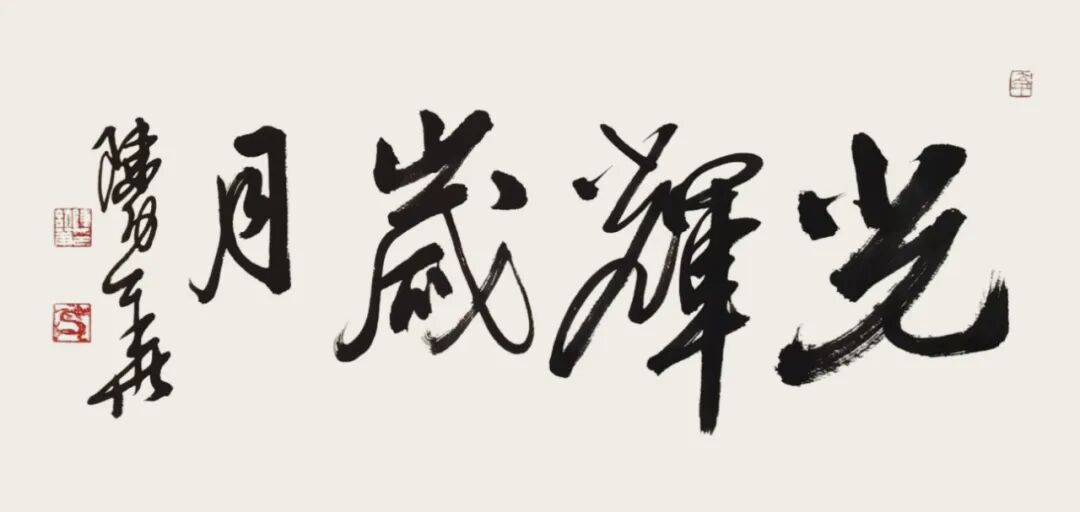 光輝歲月
陳